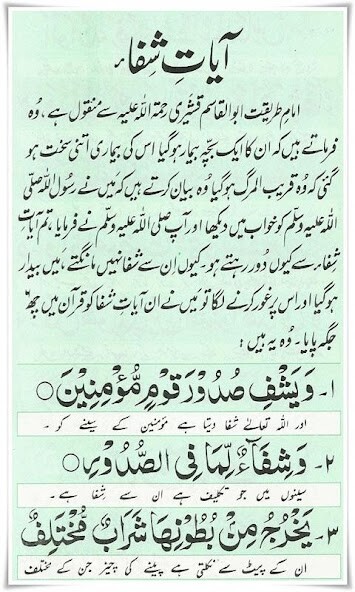 آیاتِ شِفاء
امامِ طریقت ابوالقاسم قشیری رحمۃ اللہ علیہ سے منقول ہے، وُہ
فرماتے ہیں کہ ان کا ایک بچّہ بیمار ہوگیا اس کی بیماری اتنی سخت ہو
گئی کہ وُہ قریب المرگ ہوگیا وُہ بیان کرتے ہیں کہ مَیں نے رسول اللہ صلی
اللہ علیہ وسلّم کو خواب میں دیکھا اور آپ صلی اللہ علیہ وسلّم نے فرمایا، تم آیاتِ
شِفاء سے کیوں دُور رہتے ہو۔ کیوں اِن سے شفا نہیں مانگتے، مَیں بیدار
ہوگیا اور اس پر غور کرنے لگا تو مَیں نے ان آیاتِ شفا کو قرآن میں چھ
جگہ پایا۔ وُہ یہ ہیں:
۱۔ وَيَشْفِ صُدُوْرَ قَوْمٍ مُّؤْمِنِيْنَ ○
اور اللہ تعالیٰ شفا دیتا ہے مؤمنین کے سینے کو ۔
۲۔ وَشِفَآءٌ لِّمَا فِى الصُّدُوْرِ ○
سینوں میں جو تکلیف ہے ان سے شِفا ہے۔
۳۔ يَخْرُجُ مِنْۢ بُطُوْنِهَا شَرَابٌ مُّخْتَلِفٌ
ان کے پیٹ سے نکلتی ہے پینے کی چیز جن کے مختلف